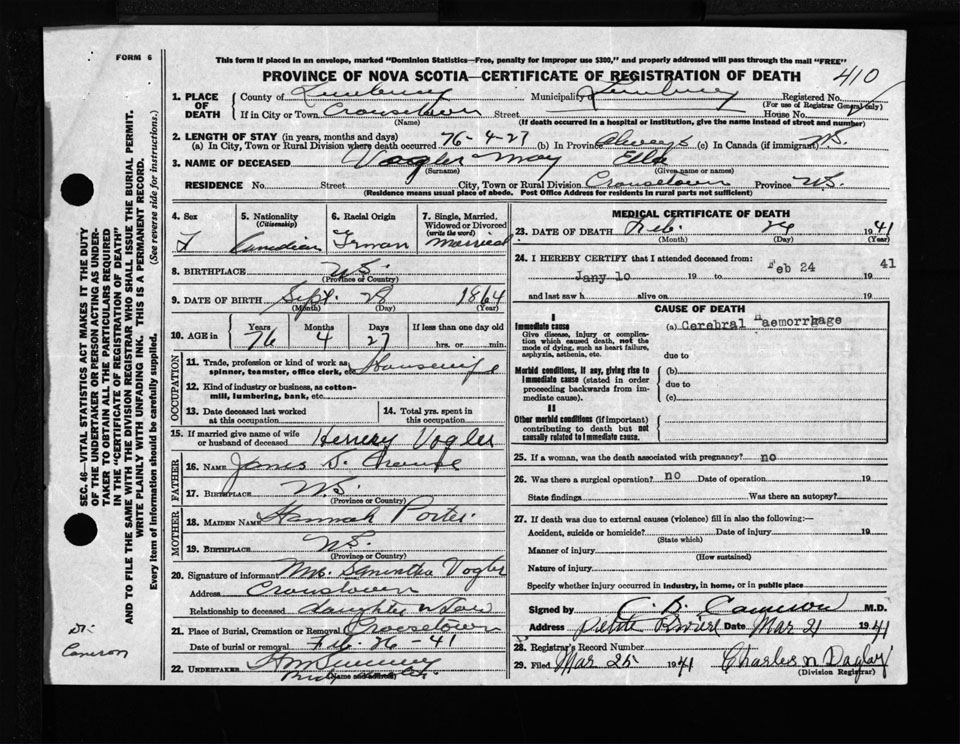 FORM 6
This form if placed in an envelope, marked "Dominion Statistics—Free, penalty for improper use $300," and properly addressed will pass through the mail "FREE"
PROVINCE OF NOVA SCOTIA—CERTIFICATE OF REGISTRATION OF DEATH
410
1. PLACE OF DEATH
County of Lunenburg Municipality Lunenburg Registered No.
(For use of Registrar General only)
If in City or Town Crousetown Street House No.
(Name) (If death occurred in a hospital or institution, give the name instead of street and number)
2. LENGTH OF STAY (in years, months and days)
(a) In City, Town or Rural Division where death occurred 76-4-27 (b) In Province Always (c) In Canada (if immigrant) N.S.
3. NAME OF DECEASED Vogler May Ella
(Surname) (Given name or names)
RESIDENCE No. Street City, Town or Rural Division Crousetown Province N.S.
(Residence means usual place of abode. Post Office Address for residents in rural parts not sufficient)
4. Sex F
5. Nationality (Citizenship) Canadian
6. Racial Origin German
7. Single, Married, Widowed or Divorced (write the word) Married
8. BIRTHPLACE N.S.
(Province or Country)
9. DATE OF BIRTH Sept. 28 1864
(Month) (Day) (Year)
10. AGE in Years 76 Months 4 Days 27 If less than one day old
hrs. or min.
OCCUPATION
11. Trade, profession or kind of work as spinner, teamster, office clerk, etc. Housewife
12. Kind of industry or business, as cotton-mill, lumbering, bank, etc.
13. Date deceased last worked at this occupation
14. Total yrs. spent in this occupation
15. If married give name of wife or husband of deceased Vogler
FATHER
16. NAME James
17. BIRTHPLACE N.S.
(Province or Country)
MOTHER
18. MAIDEN NAME Hannah Porter
19. BIRTHPLACE N.S.
(Province or Country)
20. Signature of informant Mrs. Samintha Vogler
Address Crousetown
Relationship to deceased daughter in law
21. Place of Burial, Cremation or Removal Crousetown
Date of burial or removal Feb 26-41
22. UNDERTAKER
(Name and address)
MEDICAL CERTIFICATE OF DEATH
23. DATE OF DEATH Feb. 24 1941
(Month) (Day) (Year)
24. I HEREBY CERTIFY that I attended deceased from:
Jany 10 19 to Feb 24 19 41
and last saw h alive on 19
CAUSE OF DEATH
I
Immediate cause
Give disease, injury or complication which caused death, not the mode of dying, such as heart failure, asphyxia, asthenia, etc.
(a) Cerebral Haemorrhage
due to
Morbid conditions, if any, giving rise to immediate cause (stated in order proceeding backwards from immediate cause).
(b)
due to
(c)
II
Other morbid conditions (if important) contributing to death but not causally related to immediate cause.
25. If a woman, was the death associated with pregnancy? no
26. Was there a surgical operation? no Date of operation 19
State findings Was there an autopsy?
27. If death was due to external causes (violence) fill in also the following:—
Accident, suicide or homicide? Date of injury 19
(State which)
Manner of injury
(How sustained)
Nature of injury
Specify whether injury occurred in industry, in home, or in public place
Signed by C. B. Cameron M.D.
Address Petite Riviere Date Mar 21 1941
28. Registrar's Record Number
29. Filed Mar 25 1941 Charles
(Division Registrar)
SEC. 46—VITAL STATISTICS ACT MAKES IT THE DUTY
OF THE UNDERTAKER OR PERSON ACTING AS UNDER-
TAKER TO OBTAIN ALL THE PARTICULARS REQUIRED
IN THE "CERTIFICATE OF REGISTRATION OF DEATH"
AND TO FILE THE SAME WITH THE DIVISION REGISTRAR WHO SHALL ISSUE THE BURIAL PERMIT.
WRITE PLAINLY WITH UNFADING INK. THIS IS A PERMANENT RECORD.
Every item of information should be carefully supplied. (See reverse side for instructions.)
Dr.
Cameron